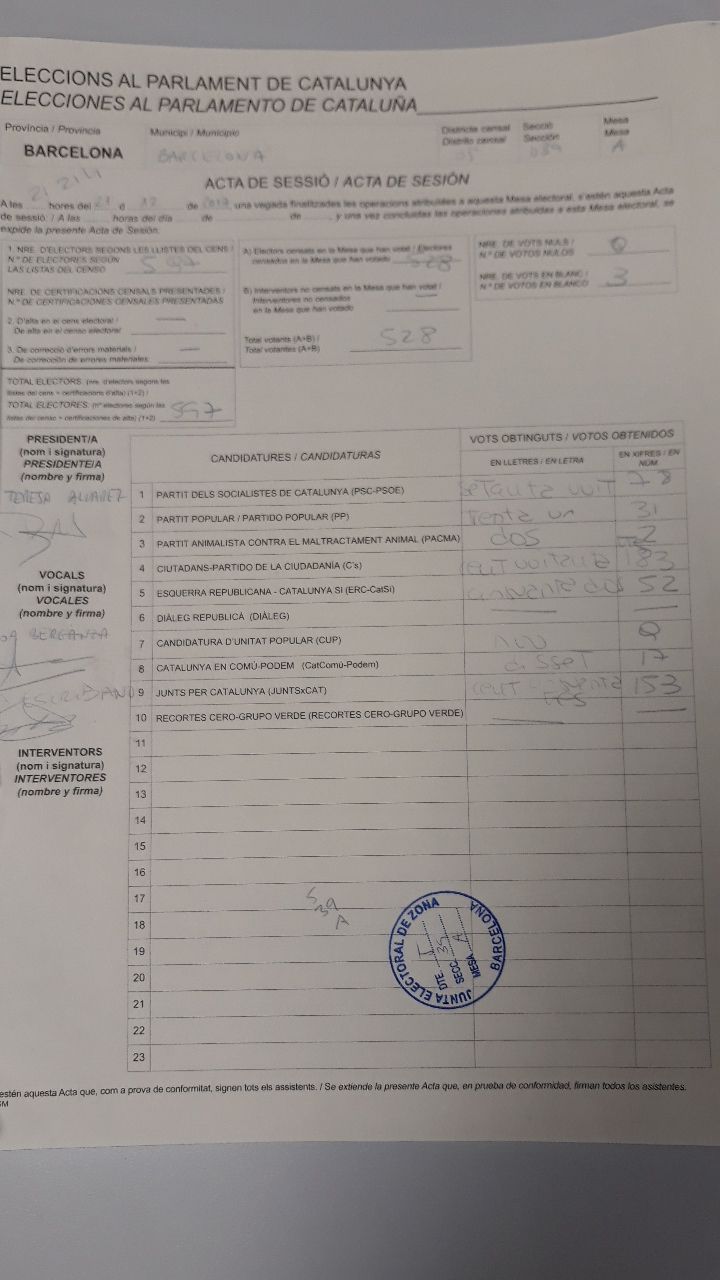 ELECCIONS AL PARLAMENT DE CATALUNYA
ELECCIONES AL PARLAMENTO DE CATALUÑA
Província / Provincia Municipi / Municipio Districte censal Secció Mesa
Distrito censal Sección Mesa
BARCELONA BARCELONA 05 039 A
ACTA DE SESSIÓ / ACTA DE SESIÓN
A les hores del 21 d 12 de 2017, una vegada finalitzades les operacions atribuïdes a aquesta Mesa electoral, s'estén aquesta Acta
de sessió. / A las horas del día de de , y una vez concluidas las operaciones atribuidas a esta Mesa electoral, se
expide la presente Acta de Sesión.
1. NRE. D'ELECTORS SEGONS LES LLISTES DEL CENS /
N.º DE ELECTORES SEGÚN
LAS LISTAS DEL CENSO 597
NRE. DE CERTIFICACIONS CENSALS PRESENTADES /
N.º DE CERTIFICACIONES CENSALES PRESENTADAS
2. D'alta en el cens electoral /
De alta en el censo electoral
3. De correcció d'errors materials /
De corrección de errores materiales
TOTAL ELECTORS (nre. d'electors segons les
llistes del cens + certificacions d'alta) (1+2) /
TOTAL ELECTORES (nº electores según las
listas del censo + certificaciones de alta) (1+2) 597
A) Electors censats en la Mesa que han votat / Electores
censados en la Mesa que han votado 528
B) Interventors no censats en la Mesa que han votat /
Interventores no censados
en la Mesa que han votado
Total votants (A+B) /
Total votantes (A+B) 528
NRE. DE VOTS NULS /
N.º DE VOTOS NULOS 0
NRE. DE VOTS EN BLANC /
N.º DE VOTOS EN BLANCO 3
PRESIDENT/A
(nom i signatura)
PRESIDENTE/A
(nombre y firma)
TERESA ALVAREZ
VOCALS
(nom i signatura)
VOCALES
(nombre y firma)
BERGANZA
ESCRIBANO
INTERVENTORS
(nom i signatura)
INTERVENTORES
(nombre y firma)
CANDIDATURES / CANDIDATURAS VOTS OBTINGUTS / VOTOS OBTENIDOS
EN LLETRES / EN LETRA EN XIFRES / EN NÚM.
1 PARTIT DELS SOCIALISTES DE CATALUNYA (PSC-PSOE) setanta vuit 78
2 PARTIT POPULAR / PARTIDO POPULAR (PP) Trenta un 31
3 PARTIT ANIMALISTA CONTRA EL MALTRACTAMENT ANIMAL (PACMA) dos 2
4 CIUTADANS-PARTIDO DE LA CIUDADANÍA (C's) cent vuitanta tres 183
5 ESQUERRA REPUBLICANA - CATALUNYA SÍ (ERC-CatSí) cinquanta dos 52
6 DIÀLEG REPUBLICÀ (DIÀLEG)
7 CANDIDATURA D'UNITAT POPULAR (CUP) nou 9
8 CATALUNYA EN COMÚ-PODEM (CatComú-Podem) disset 17
9 JUNTS PER CATALUNYA (JUNTSxCAT) cent cinquanta tres 153
10 RECORTES CERO-GRUPO VERDE (RECORTES CERO-GRUPO VERDE)
11
12
13
14
15
16
17
18
19
20
21
22
23
539
A
JUNTA ELECTORAL DE ZONA
BARCELONA
DTE.
SECC. 39
MESA A
estén aquesta Acta que, com a prova de conformitat, signen tots els assistents. / Se extiende la presente Acta que, en prueba de conformidad, firman todos los asistentes.